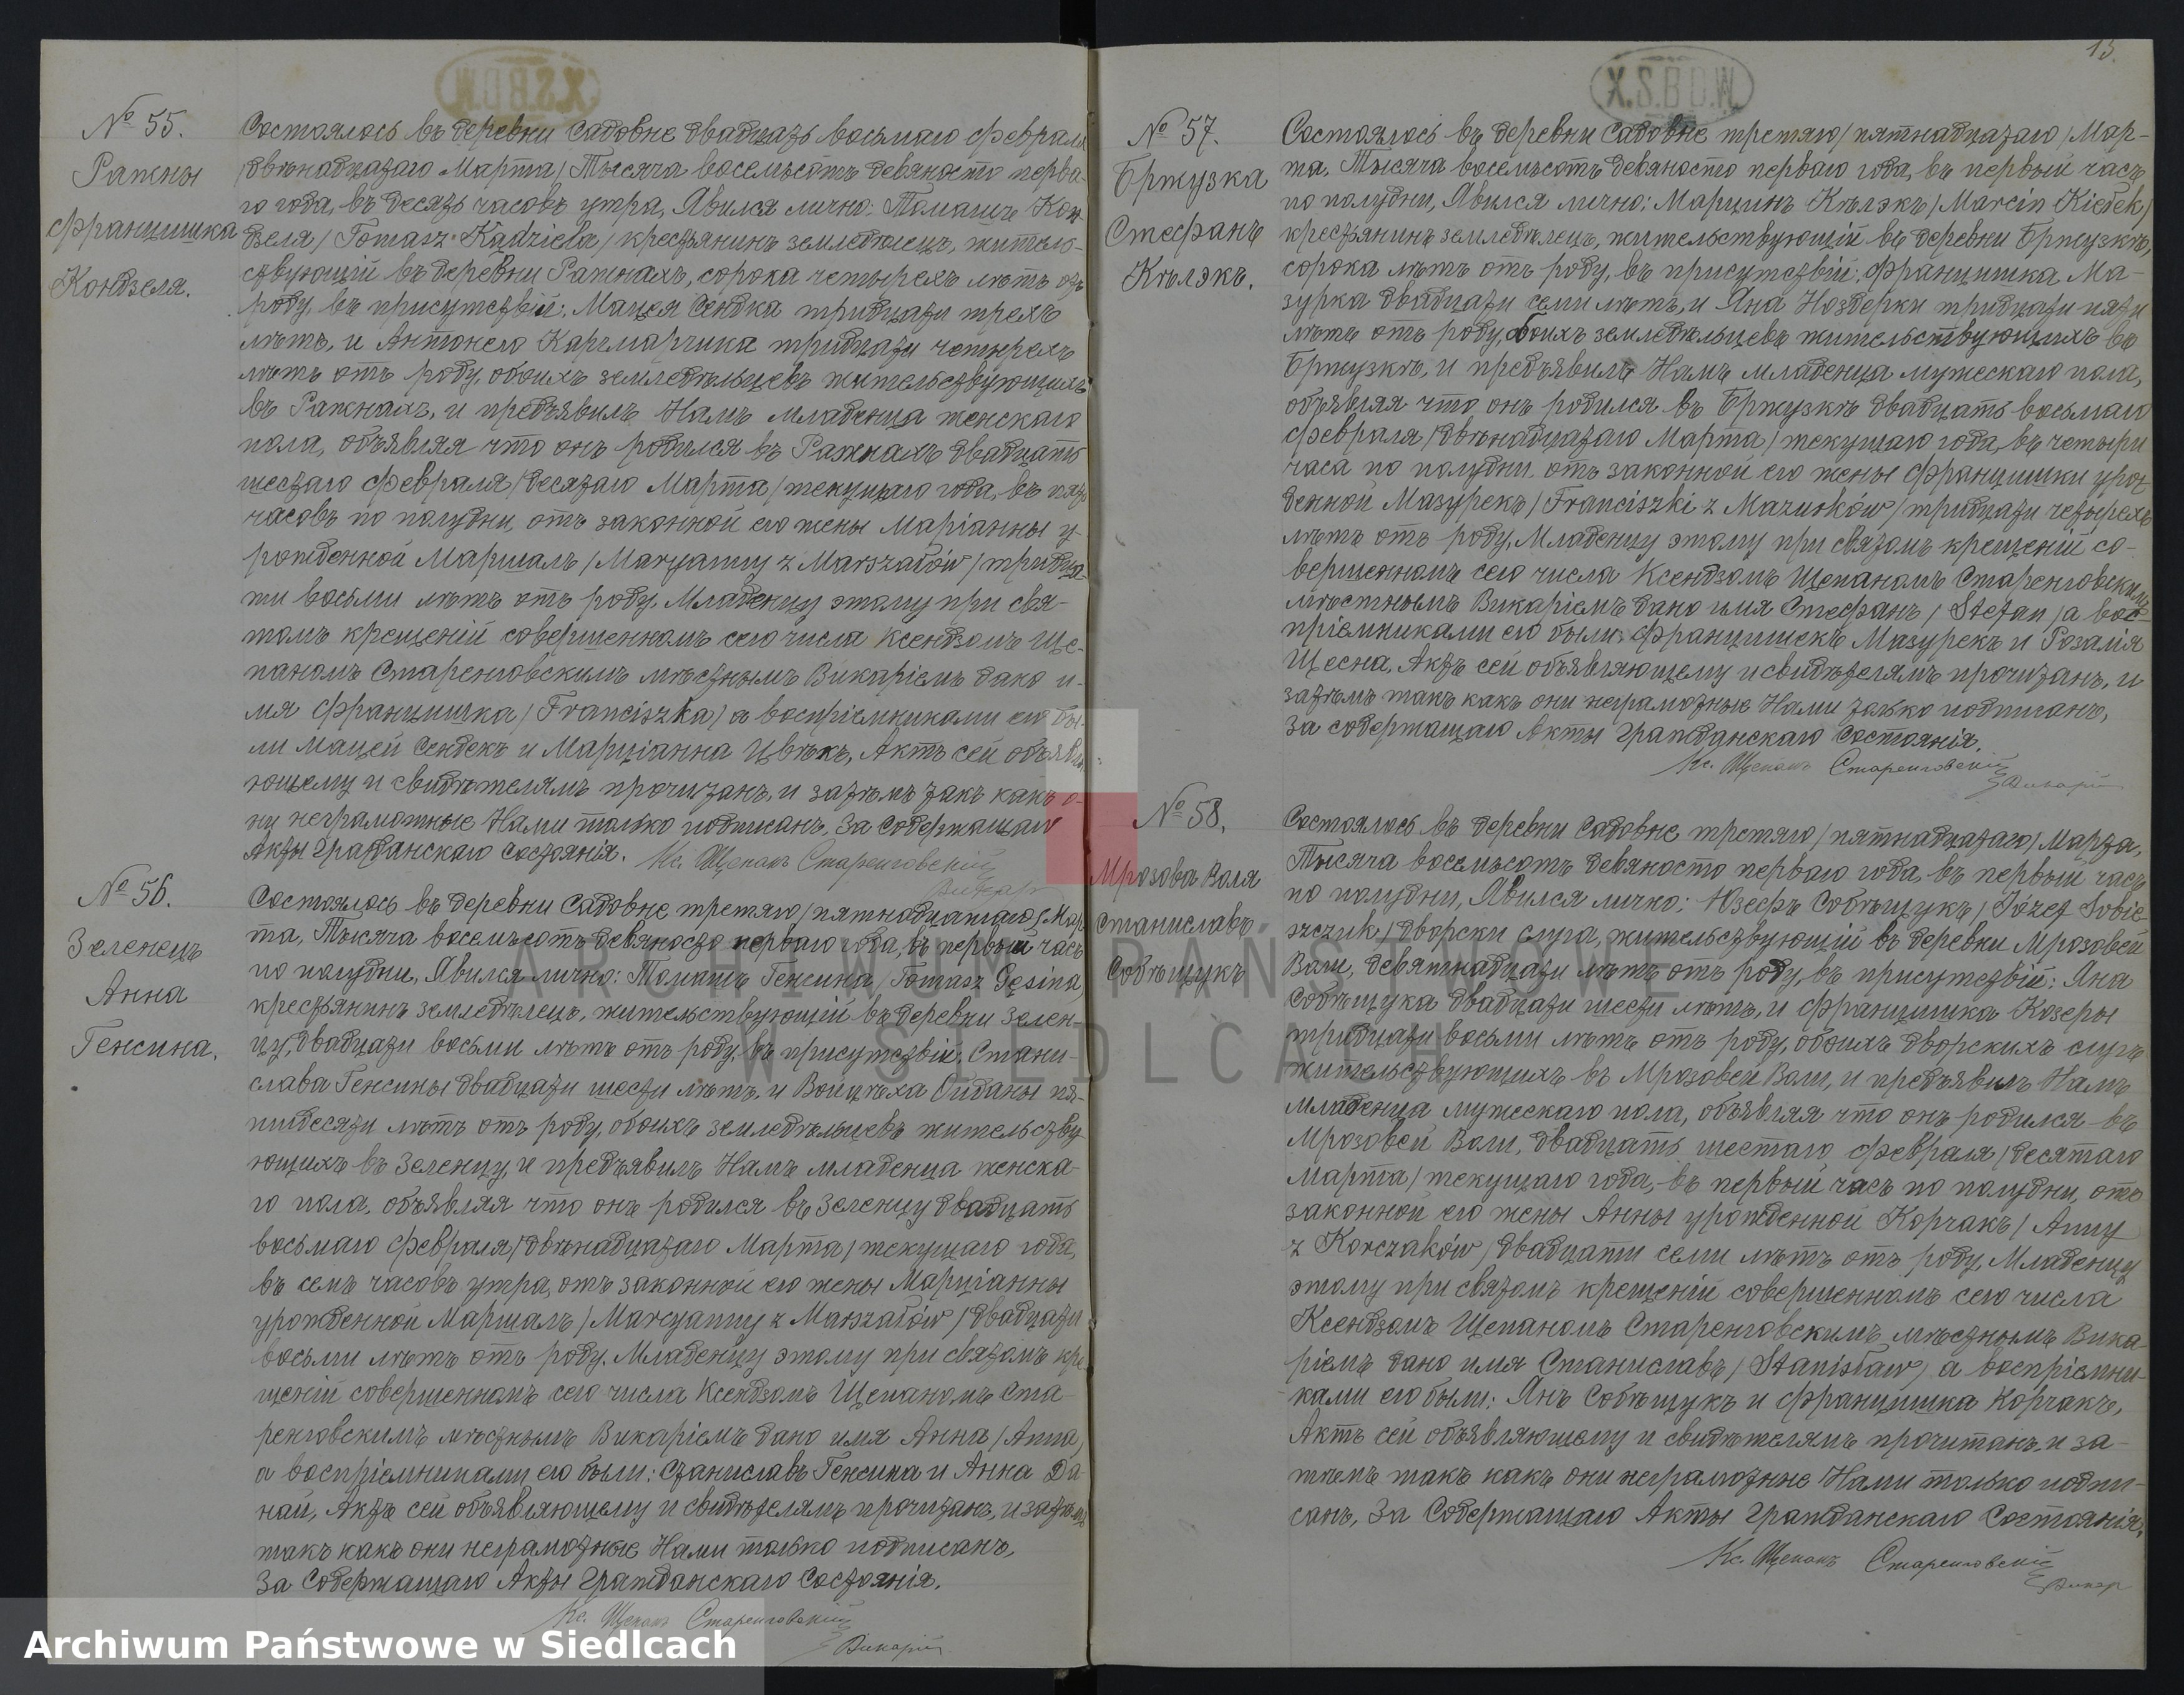 № 55.
Ражны
Францишка
Кондзеля.
Состоялось въ деревни Садовне двадцать восьмаго февраля
/двѣнадцатаго Марта/ Тысяча восемьсотъ девяносто перва-
го года, въ десять часовъ утра, Явился лично: Томашъ Кон-
дзеля /Tomasz Kądziela/ крестьянинъ земледѣлецъ, житель-
ствующій въ деревни Ражнахъ, сорока четырехъ лѣтъ отъ
роду, въ присутствіи: Мацея Сендка тридцати трехъ
лѣтъ, и Антонего Карчмарчика тридцати четырехъ
лѣтъ отъ роду, обоихъ земледѣльцевъ жительствующихъ
въ Ражнахъ, и предъявилъ Намъ младенца женскаго
пола, объявляя что онъ родился въ Ражнахъ двадцать
шестаго февраля /десятаго Марта/ текущаго года, въ пять
часовъ по полудни, отъ законной его жены Маріанны у-
рожденной Маршалъ /Maryanny z Marszałów/ тридца-
ти восьми лѣтъ отъ роду. Младенцу этому при свя-
томъ крещеніи совершенномъ сего числа Ксендзомъ Ще-
паномъ Старенговскимъ мѣстнымъ Викаріемъ дано и-
мя Францишка /Franciszka/ а воспріемниками его бы-
ли Мацей Сендекъ и Марціанна Цвѣкъ, Актъ сей объявля-
ющему и свидѣтелямъ прочитанъ, и затѣмъ такъ какъ о-
ни неграмотные Нами только подписанъ. За Содержащаго
Акты Гражданскаго Состоянія. Кс. Щепанъ Старенговскій
Викарій
№ 56.
Зеленецъ
Анна
Генсина.
Состоялось въ деревни Садовне третяго /пятнадцатаго/ Мар-
та, Тысяча восемьсотъ девяносто перваго года, въ первый часъ
по полудни, Явился лично: Томашъ Генсина /Tomasz Gęsina/
крестьянинъ земледѣлецъ, жительствующій въ деревни Зелен-
цу, двадцати восьми лѣтъ отъ роду, въ присутствіи, Стани-
слава Генсины двадцати шести лѣтъ, и Войцѣха Ойданы пя-
тидесяти лѣтъ отъ роду, обоихъ земледѣльцевъ жительству-
ющихъ въ Зеленцу, и предъявилъ Намъ младенца женска-
го пола, объявляя что онъ родился въ Зеленцу двадцать
восьмаго февраля /двѣнадцатаго Марта/ текущаго года,
въ семь часовъ утра, отъ законной его жены Марціанны
урожденной Маршалъ /Marcyanny z Marszałów/ двадцати
восьми лѣтъ отъ роду. Младенцу этому при святомъ кре-
щеніи совершенномъ сего числа Ксендзомъ Щепаномъ Ста-
ренговскимъ мѣстнымъ Викаріемъ дано имя Анна /Anna/
а воспріемниками его были: Станиславъ Генсина и Анна Да-
най, Актъ сей объявляющему и свидѣтелямъ прочитанъ, и затѣмъ
такъ какъ они неграмотные Нами только подписанъ,
За Содержащаго Акты Гражданскаго Состоянія.
Кс. Щепанъ Старенговскій
Викарій
X.S.B.D.W.
15.
№ 57.
Бржузка
Стефанъ
Кѣлэкъ.
Состоялось въ деревни Садовне третяго /пятнадцатаго/ Мар-
та, Тысяча восемьсотъ девяносто перваго года, въ первый часъ
по полудни, Явился лично: Марцинъ Кѣлэкъ /Marcin Kiełek/
крестьянинъ земледѣлецъ, жительствующій въ деревни Бржузкѣ,
сорока лѣтъ отъ роду, въ присутствіи: Францишка Ма-
зурка двадцати семи лѣтъ, и Яна Ноздерки тридцати пяти
лѣтъ отъ роду, обоихъ земледѣльцевъ жительствующихъ въ
Бржузкѣ, и предъявилъ Намъ младенца мужескаго пола,
объявляя что онъ родился въ Бржузкѣ двадцать восьмаго
февраля /двѣнадцатаго Марта/ текущаго года, въ четыри
часа по полудни, отъ законной его жены Францишки урож-
денной Мазурекъ /Franciszki z Mazurków/ тридцати четырехъ
лѣтъ отъ роду, Младенцу этому при святомъ крещеніи со-
вершенномъ сего числа Ксендзомъ Щепаномъ Старенговскимъ
мѣстнымъ Викаріемъ дано имя Стефанъ /Stefan/ а вос-
пріемниками его были: Францишекъ Мазурекъ и Розалія
Щесна, Актъ сей объявляющему и свидѣтелямъ прочитанъ, и
затѣмъ такъ какъ они неграмотные Нами только подписанъ,
За содержащаго Акты Гражданскаго Состоянія.
Кс. Щепанъ Старенговскій
Викарій
№ 58.
Мрозова Воля
Станиславъ
Собѣщукъ
Состоялось въ деревни Садовне третяго /пятнадцатаго/ Марта,
Тысяча восемьсотъ девяносто перваго года, въ первый часъ
по полудни, Явился лично: Юзефъ Собѣщукъ /Józef Sobie-
szczuk/ дворски слуга, жительствующій въ деревни Мрозовей
Воли, девятнадцати лѣтъ отъ роду, въ присутствіи: Яна
Собѣщука двадцати шести лѣтъ, и Францишка Козеры
тридцати восьми лѣтъ отъ роду, обоихъ дворскихъ слугъ
жительствующихъ въ Мрозовей Воли, и предъявилъ Намъ
младенца мужескаго пола, объявляя что онъ родился въ
Мрозовей Воли, двадцать шестаго февраля /десятаго
Марта/ текущаго года, въ первый часъ по полудни, отъ
законной его жены Анны урожденной Корчакъ /Anny
z Korczaków/ двадцати семи лѣтъ отъ роду, Младенцу
этому при святомъ крещеніи совершенномъ сего числа
Ксендзомъ Щепаномъ Старенговскимъ мѣстнымъ Вика-
ріемъ дано имя Станиславъ /Stanisław/ а воспріемни-
ками его были: Янъ Собѣщукъ и Францишка Корчакъ,
Актъ сей объявляющему и свидѣтелямъ прочитанъ, и за-
тѣмъ такъ какъ они неграмотные Нами только подпи-
санъ, За Содержащаго Акты Гражданскаго Состоянія.
Кс. Щепанъ Старенговскій
Викар
ARCHIWUM PAŃSTWOWE
W SIEDLCACH
Archiwum Państwowe w Siedlcach